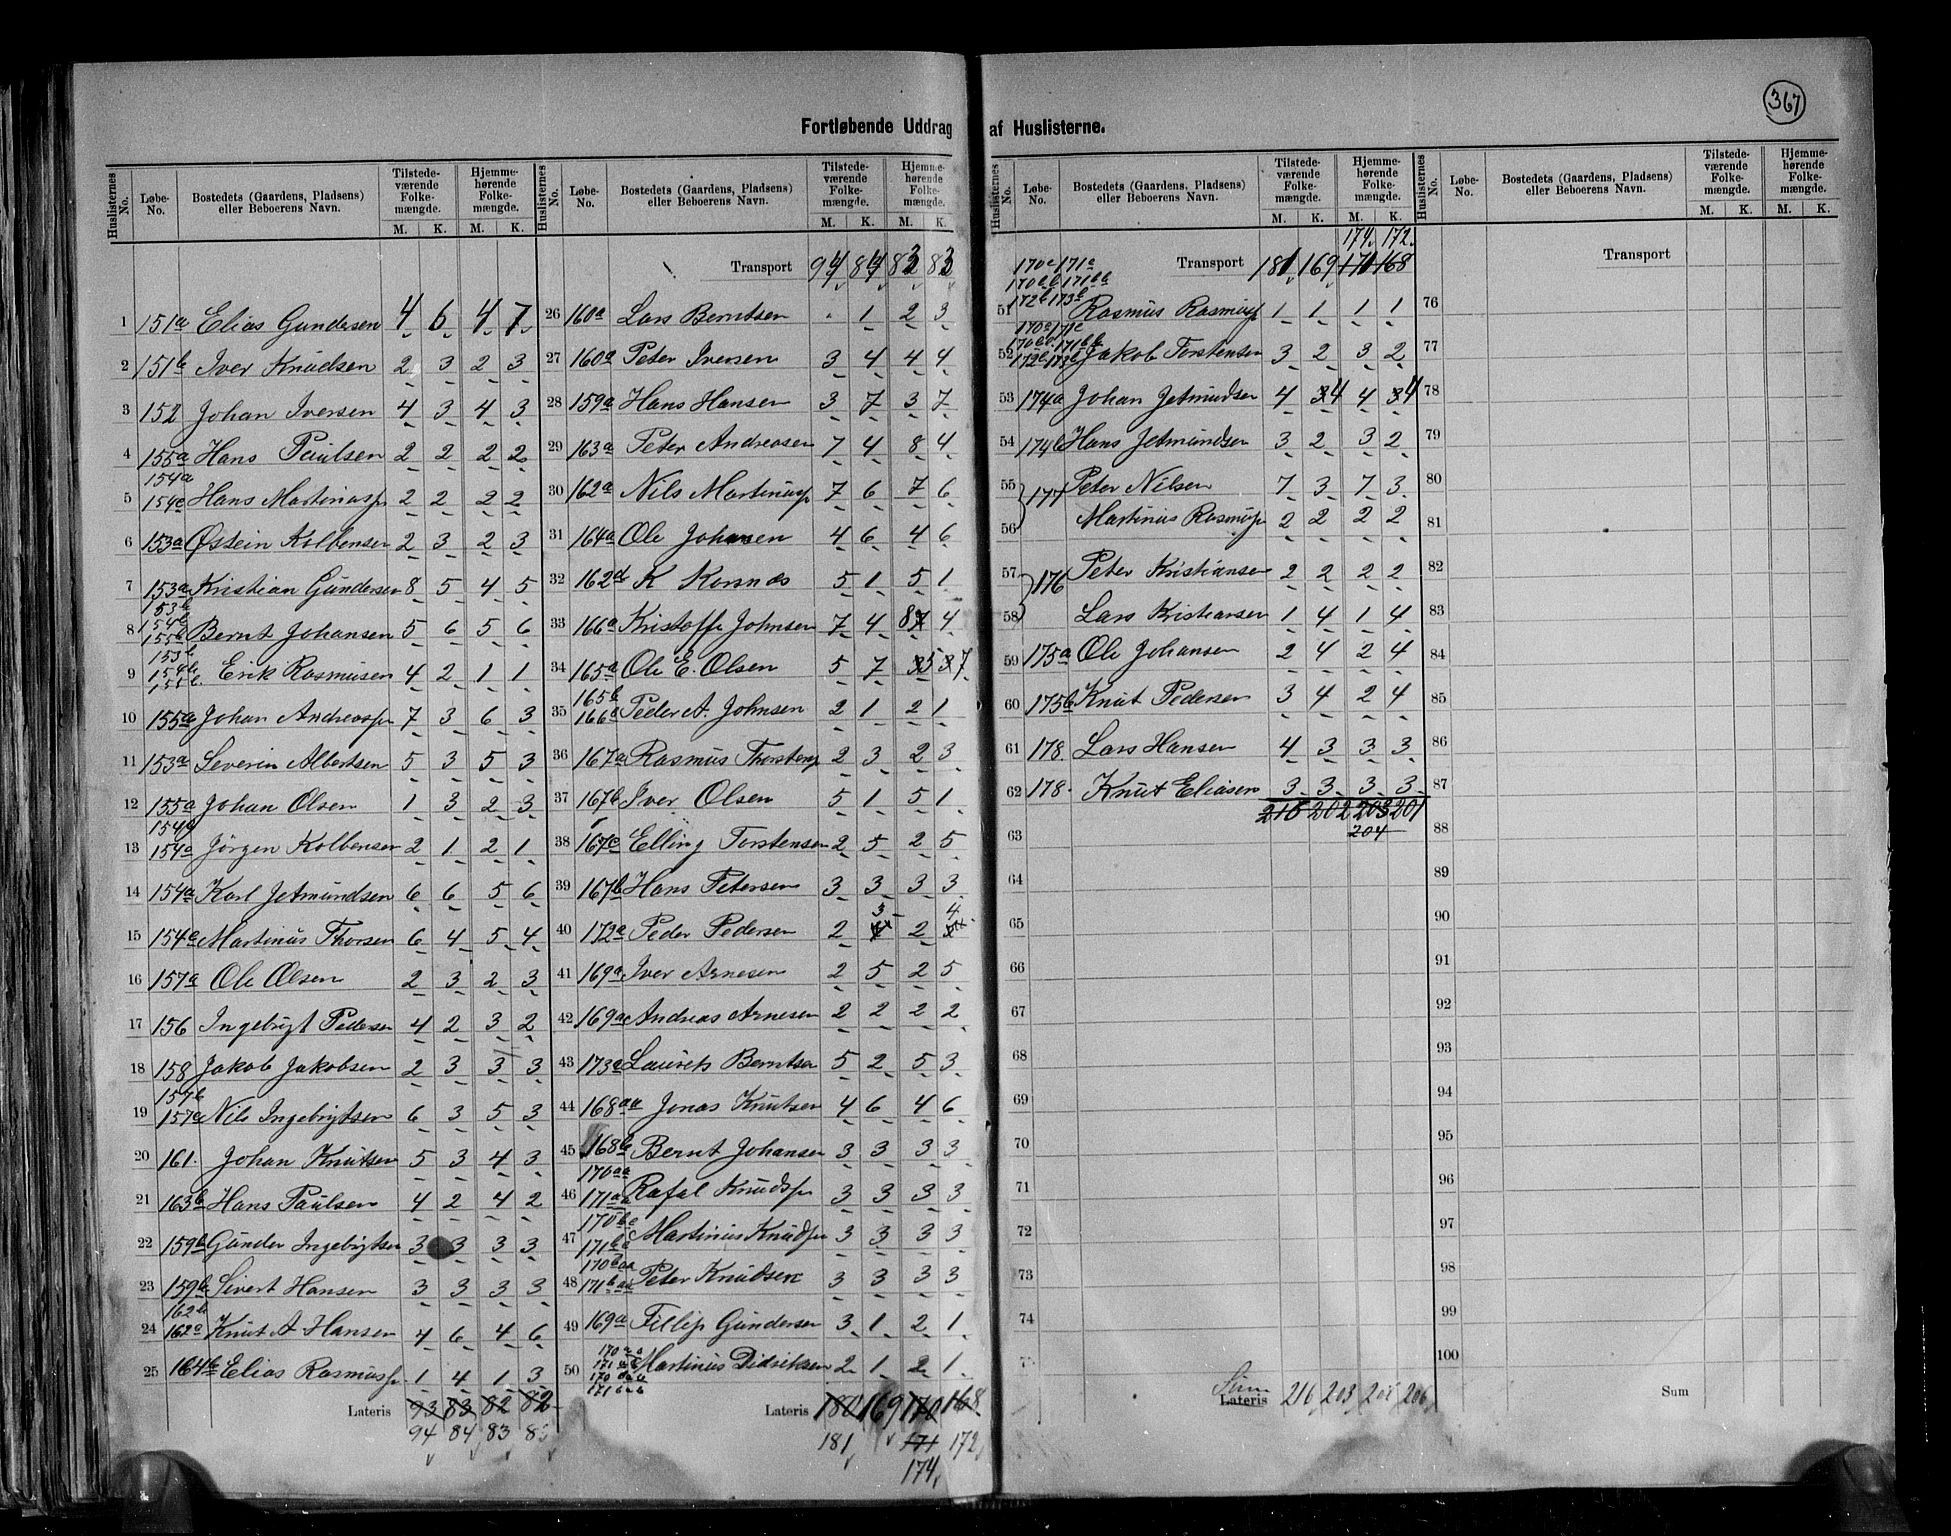 367
Fortløbende Uddrag af Huslisterne.
Huslisternes No. Løbe-No. Bostedets (Gaardens, Pladsens) eller Beboerens Navn. Tilstede-værende Folke-mængde. M. K. Hjemme-hørende Folke-mængde. M. K.
1 151a Elias Gundersen 4 6 4 7
2 151b Iver Knudsen 2 3 2 3
3 152 Johan Iversen 4 3 4 3
4 155a Hans Paulsen 2 2 2 2
154a
5 154c Hans Martinusn 2 2 2 2
6 153a Østein Kolbensen 2 3 2 3
7 153a Kristian Gundersen 8 5 4 5
153b
154b
8 155b Bernt Johansen 5 6 5 6
153b
154b
9 155c Erik Rasmusen 4 2 1 1
10 155a Johan Andreasn 7 3 6 3
11 153a Severin Albertsen 5 3 5 3
12 155a Johan Olsen 1 3 2 3
154a
13 154a Jörgen Kolbensen 2 1 2 1
14 154a Karl Jetmundsen 6 6 5 6
15 154a Martinus Thorsen 6 4 5 4
16 157a Ole Olsen 2 3 2 3
17 156 Ingebrigt Pedersen 4 2 3 2
18 158 Jakob Jakobsen 2 3 3 3
157b
19 157a Nils Ingebrigtsen 6 3 5 3
20 161. Johan Knutsen 5 3 4 3
21 163b Hans Paulsen 4 2 4 2
22 159b Gunder Ingebrigtsen 3 3 3 3
23 159b Sivert Hansen 3 3 3 3
162b
24 162a Knut A Hansen 4 6 4 6
25 164b Elias Rasmusn 1 4 1 3
Lateris 93 83 82 82
94 84 83 83
Huslisternes No. Løbe-No. Bostedets (Gaardens, Pladsens) eller Beboerens Navn. Tilstede-værende Folke-mængde. M. K. Hjemme-hørende Folke-mængde. M. K.
Transport 94 84 83 83
26 160a Lars Berntsen . 1 2 3
27 160a Peter Iversen 3 4 4 4
28 159a Hans Hansen 3 7 3 7
29 163a Peter Andreasen 7 4 8 4
30 162a Nils Martinusn 7 6 7 6
31 164a Ole Johansen 4 6 4 6
32 162a K Korsnes 5 1 5 1
33 166a Kristoffer Johnsen 7 4 8 4
34 165a Ole E. Olsen 5 7 5 7
165b
35 166c Peder A. Johnsen 2 1 2 1
36 167a Rasmus Thorstens 2 3 2 3
37 167b Iver Olsen 5 1 5 1
38 167c Elling Torstensen 2 5 2 5
39 167b Hans Petersen 3 3 3 3
40 172a Peder Pedersen 2 3 2 4
41 169a Iver Arnesen 2 5 2 5
42 169a Andreas Arnesen 2 2 2 2
43 173a Laurits Berntsen 5 2 5 3
44 168aa Jonas Knutsen 4 6 4 6
45 168b Bernt Johansen 3 3 3 3
170aa
46 171aa Rafal Knudsn 3 3 3 3
170ba
47 171ba Martinus Knudsn 3 3 3 3
170baa
48 171baa Peter Knudsen 3 3 3 3
49 169a Fillip Gundersen 3 1 2 1
50 Martinus Didriksen 2 1 2 1
Lateris 180 169 170 168
181 171 172
174
Huslisternes No. Løbe-No. Bostedets (Gaardens, Pladsens) eller Beboerens Navn. Tilstede-værende Folke-mængde. M. K. Hjemme-hørende Folke-mængde. M. K.
174. 172.
Transport 181 169 171 168
170a 171a
170bb 171bb
172b 173b
51 Rasmus Rasmusn 1 1 1 1
170c 171c
170bb 171bb
52 172b 173b Jakob Torstensen 3 2 3 2
53 174a Johan Jetmundsen 4 4 4 4
54 174b Hans Jetmundsen 3 2 3 2
55 177 Peter Nilsen 7 3 7 3
56 Martinus Rasmusn 2 2 2 2
57 176 Peter Kristiansen 2 2 2 2
58 Lars Kristiansen 1 4 1 4
59 175a Ole Johansen 2 4 2 4
60 175b Knut Pedersen 3 4 2 4
61 178. Lars Hansen 4 3 3 3
62 178. Knut Eliasen 3 3 3 3
215 202 203 201
204
63
64
65
66
67
68
69
70
71
72
73
74
Sum
Lateris 216 203 208 206
Huslisternes No. Løbe-No. Bostedets (Gaardens, Pladsens) eller Beboerens Navn. Tilstede-værende Folke-mængde. M. K. Hjemme-hørende Folke-mængde. M. K.
Transport
76
77
78
79
80
81
82
83
84
85
86
87
88
89
90
91
92
93
94
95
96
97
98
99
100
Sum